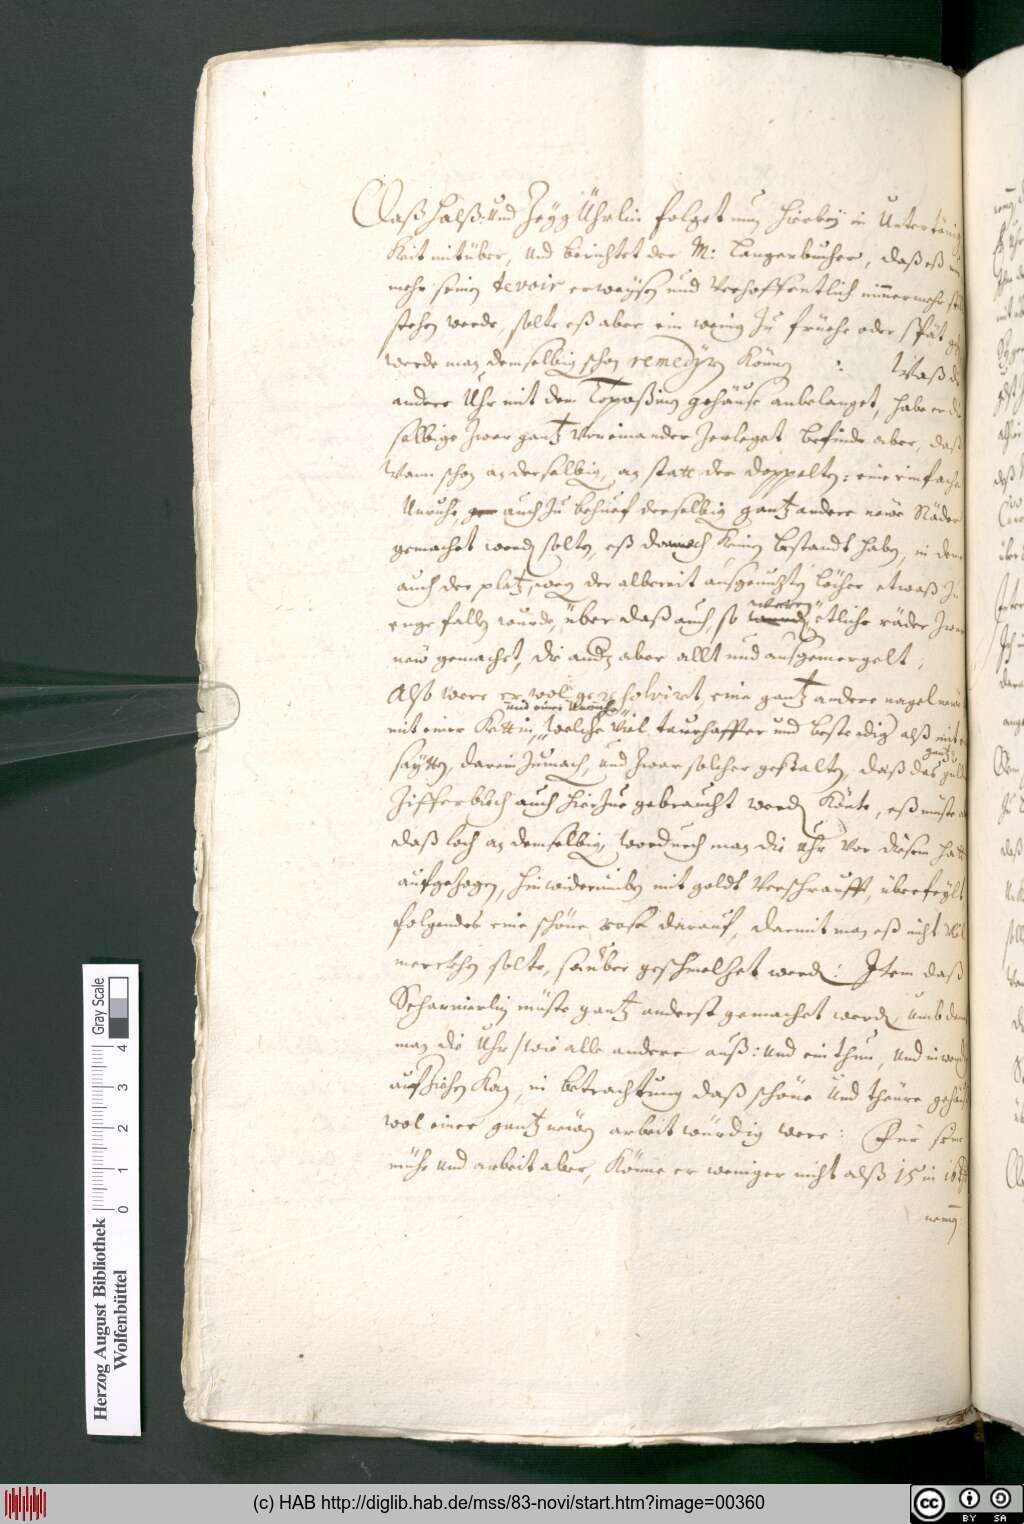 Daß Halß: Und Zeÿg Ührlin folget nun hirbeÿ in Untertänig
Keit mitüber, Und berichtet der M: Langenbucher, daß eß
mehr seinen devoir erweÿsen und Verhoffentlich nimmermehr
stehen werde, solte eß aber ein wenig zu früehe oder spät
werde man demselbigen schon remedÿren Können : Waß die
andere Uhr mit dem Topaßinen gehäuse anbelanget, habe er die
selbige zwar gantz Voneinander zerleget, befinde aber, daß
Wann schon an derselbigen, an statt der doppelten: eine einfache
Unruhe, auch zu behuef derselbigen gantz andere newe Räder
gemachet werden solten, eß dannoch Keinen bestandt haben, in deme
auch der platz, wegen der albereit außgenutzten löcher etwaß zu
enge fallen wurde, über daß auch, so weren etliche räder zwar
new gemachet, die andern aber allt und außgemergelt;
Alß were er wol resolvirt, eine gantz andere nagel newe
mit einer Kettin, und einer Unruhe, welche Viel taurhaffter und bestendiger alß mit
saÿtten, darein zumach, und zwar solcher gestalten, daß das gantz
Zifferblech auch hierzue gebraucht werden Könte, eß müste
daß loch an demselbigen, wordurch man die Uhr vor diesem hatt
aufgezogen, hinwiderumben mit goldt Verschraufft, überfeÿlt
folgendes eine schöne rose darauf, darmit man eß nicht
mercken solte, sauber geschmelzet werden: Item daß
Scharnierlin müste gantz anderst gemachet werden, umb damit
man die Uhr / wie alle andere auß: und ein thun, und inwendig
aufziehen Kan, in betrachtung daß schöne und theure gehäuß
wol einer gantz newen arbeit würdig were: Für seine
mühe und arbeit aber, Könne er weniger nicht alß 15 in 16
nemen
Herzog August Bibliothek
Wolfenbüttel
0 1 2 3 4
Gray Scale
(c) HAB http://diglib.hab.de/mss/83-novi/start.htm?image=00360
cc BY SA